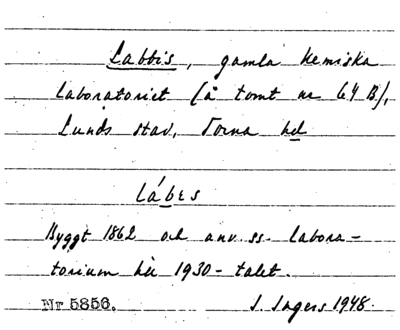 Labbis, gamla kemiska
laboratoriet (å tomt nr 64 B),
Lunds stad, Torna hd
lábes
Byggt 1862 och anv. ss. labora-
torium till 1930-talet.
Nr 5856. I. Ingers 1948.